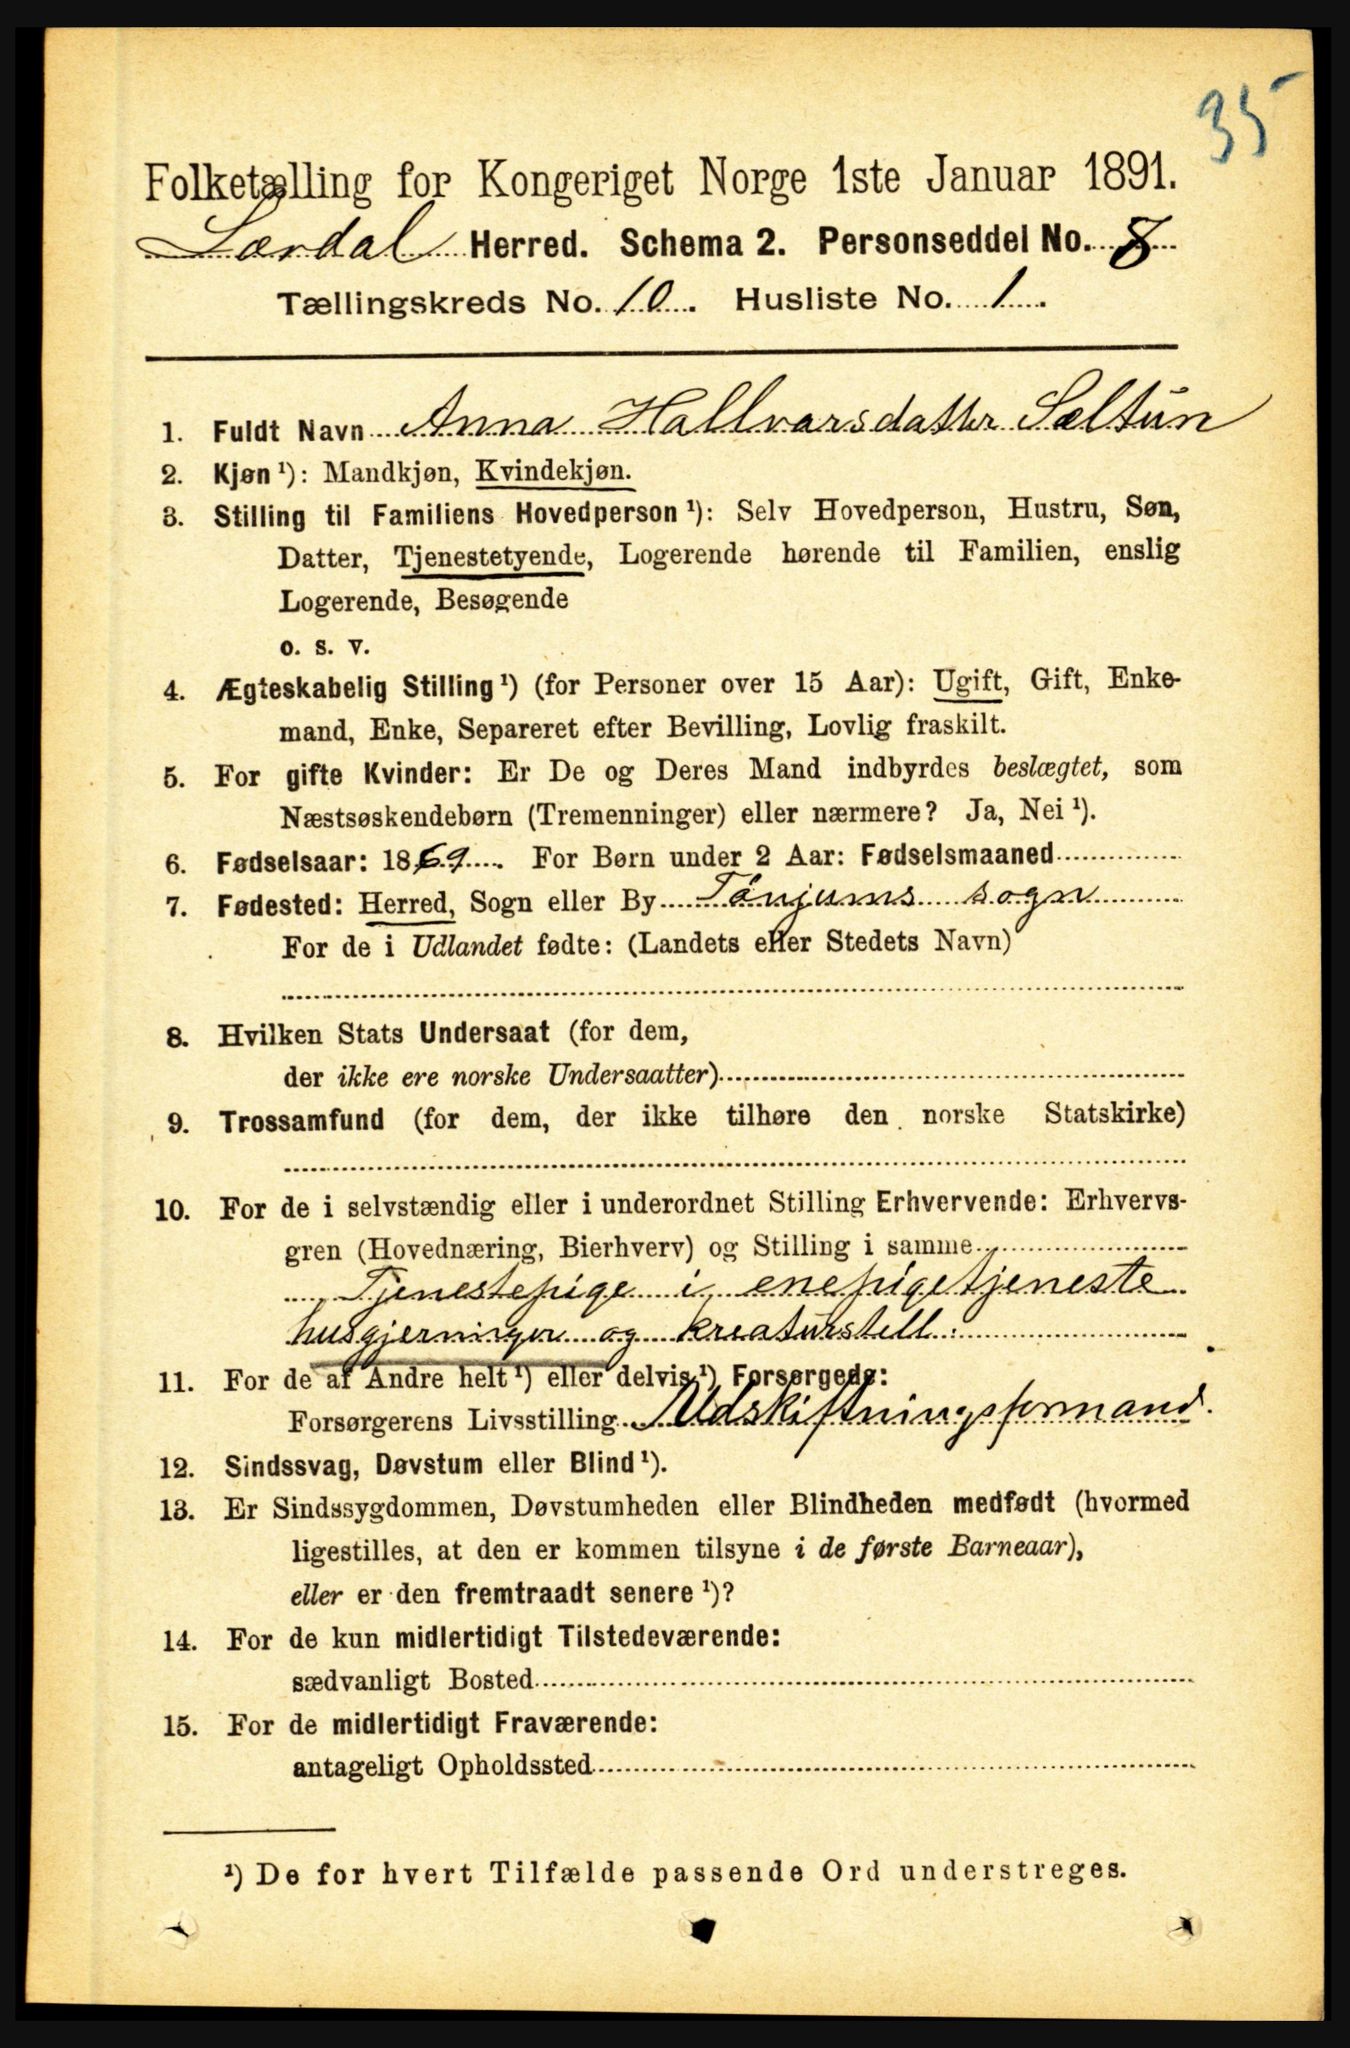 35
Folketælling for Kongeriget Norge 1ste Januar 1891.
Lærdal Herred. Schema 2. Personseddel No. 8
Tællingskreds No. 10. Husliste No. 1.
1. Fuldt Navn Anna Hallvarsdatter Sæltun
2. Kjøn ¹): Mandkjøn, Kvindekjøn.
3. Stilling til Familiens Hovedperson ¹): Selv Hovedperson, Hustru, Søn,
Datter, Tjenestetyende, Logerende hørende til Familien, enslig
Logerende, Besøgende
o. s. v.
4. Ægteskabelig Stilling ¹) (for Personer over 15 Aar): Ugift, Gift, Enke-
mand, Enke, Separeret efter Bevilling, Lovlig fraskilt.
5. For gifte Kvinder: Er De og Deres Mand indbyrdes beslægtet, som
Næstsøskendebørn (Tremenninger) eller nærmere? Ja, Nei ¹).
6. Fødselsaar: 1869. For Børn under 2 Aar: Fødselsmaaned
7. Fødested: Herred, Sogn eller By Tönjums sogn
For de i Udlandet fødte: (Landets eller Stedets Navn)
8. Hvilken Stats Undersaat (for dem,
der ikke ere norske Undersaatter)
9. Trossamfund (for dem, der ikke tilhøre den norske Statskirke)
10. For de i selvstændig eller i underordnet Stilling Erhvervende: Erhvervs-
gren (Hovednæring, Bierhverv) og Stilling i samme
Tjenestepige i enepigetjeneste
husgjerninger og kreaturstell.
11. For de af Andre helt ¹) eller delvis ¹) Forsørgede:
Forsørgerens Livsstilling Udskiftningsformand.
12. Sindssvag, Døvstum eller Blind ¹).
13. Er Sindssygdommen, Døvstumheden eller Blindheden medfødt (hvormed
ligestilles, at den er kommen tilsyne i de første Barneaar),
eller er den fremtraadt senere ¹)?
14. For de kun midlertidigt Tilstedeværende:
sædvanligt Bosted
15. For de midlertidigt Fraværende:
antageligt Opholdssted
¹) De for hvert Tilfælde passende Ord understreges.